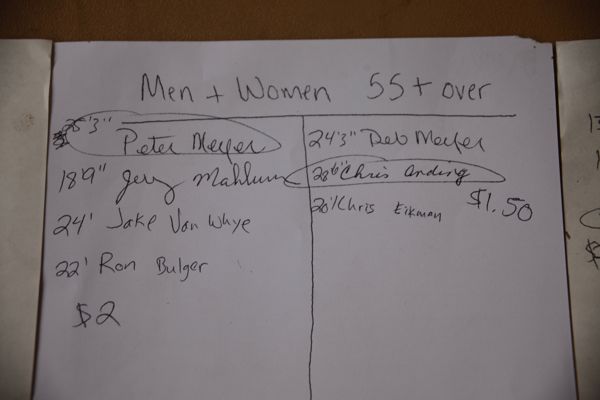 Men + Women 55 + over
25'3"
Peter Meyer
18'9" Jerry Mahlum
24' Jake Van Whye
22' Ron Bulger
$2
24'3" Deb Meyer
28'6" Chris Anding
20' Chris Eikman
$1.50